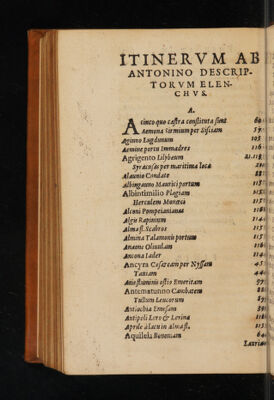 ITINERVM AB
ANTONINO DESCRIP-
TORVM ELEN-
CHVS.
A.
A cinco quo castra constituta sunt 60
Aemona Sirmium per Sisciam 59
Aginno Lugdunum 105
Aemine portu Immadres 116
Agrigento Lilybæum
Syracusas per maritima loca
Alaunio Condate 88
Albingauno Maurici portum 115
Albintimilio Plagiam 115
Herculem Monæci 115
Alconi Pompeianianas 116
Algis Rapinium 114
Almast. Scabros 115
Almina Talamonis portum 115
Anaone Oliuulam 116
Ancona Iader 114
Ancyra Cæsaream per Nyssam 45
Tauiam 44
Ante fluminis ostio Emeritam 97
Antematunno Cambatem 88
Tullum Leucorum 89
Antiochia Emesam 41
Antipoli Lero & Lerina 118
Aprile ålacu in Almast. 115
Aquileia Bononiam 64
Lauriac